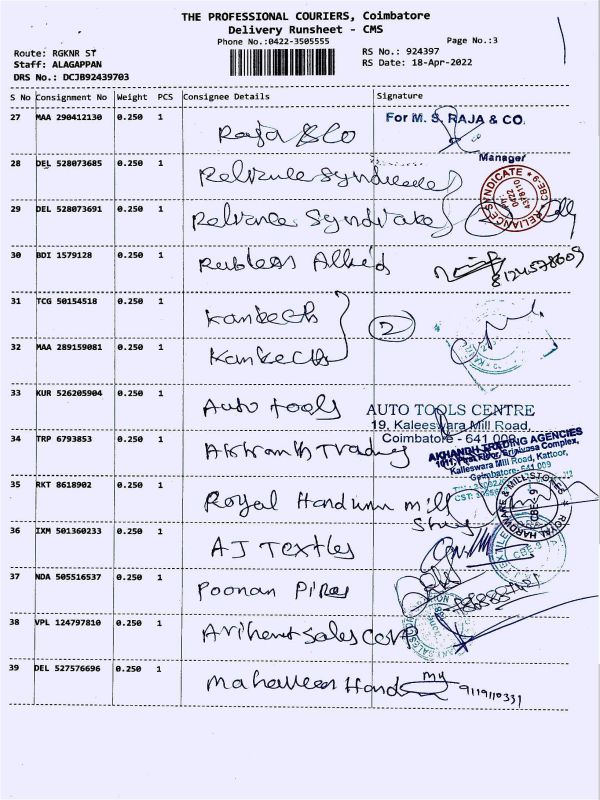 THE PROFESSIONAL COURIERS, Coimbatore
Delivery Runsheet - CMS
Phone No.:0422-3505555
Page No.:3
Route: RGKNR ST
RS No.: 924397
Staff: ALAGAPPAN
RS Date: 18-Apr-2022
DRS No.: DCJB92439703
S No Consignment No Weight PCS Consignee Details Signature
27 MAA 290412130 0.250 1 Raja & Co For M. S. RAJA & CO.
Manager
28 DEL 528073685 0.250 1 Reliance Syndicate
29 DEL 528073691 0.250 1 Reliance Syndicate
RELIANCE SYNDICATE ★ CBE-9
0422
4378110
30 BDI 1579128 0.250 1 Allied 8124578609
31 TCG 50154518 0.250 1 Kantech 2
32 MAA 289159081 0.250 1 Kantech
33 KUR 526205904 0.250 1 Auto tools AUTO TOOLS CENTRE
19, Kaleeswara Mill Road,
Coimbatore - 641 009
34 TRP 6793853 0.250 1 Trading AKHANDH TRADING AGENCIES
1011, First Floor, Srinivasa Complex,
Kalleswara Mill Road, Kattoor,
Coimbatore 641 009
35 RKT 8618902 0.250 1 Royal Hardware mill
ROYAL HARDWARE & MILL STORES ★ CBE - 9
36 IXM 501360233 0.250 1 AJ Textiles CBE-9
37 NDA 505516537 0.250 1 Poonan Pipes
38 VPL 124797810 0.250 1 Arihent Sales Corp
39 DEL 527576696 0.250 1 Mahaveer Hand my 9119110331